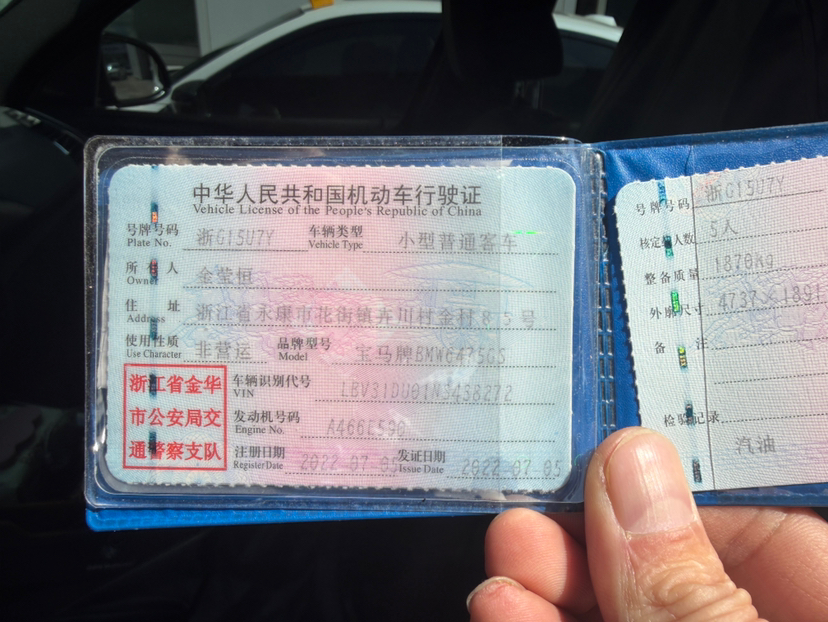 中华人民共和国机动车行驶证
Vehicle License of the People's Republic of China
号牌号码 浙G15U7Y 车辆类型 小型普通客车
Plate No. Vehicle Type
所有人 金莹恒
Owner
住址 浙江省永康市花街镇弁川村金村85号
Address
使用性质 非营运 品牌型号 宝马牌BMW6475GS
Use Character Model
浙江省金华
市公安局交
通警察支队
车辆识别代号
VIN LBV31DU01NS458272
发动机号码
Engine No. A466E590
注册日期 2022-07-05 发证日期 2022-07-05
Register Date Issue Date
号牌号码 浙G15U7Y
核定载人数 5人
整备质量 1870kg
外廓尺寸 4737×1891
备注
检验记录
汽油